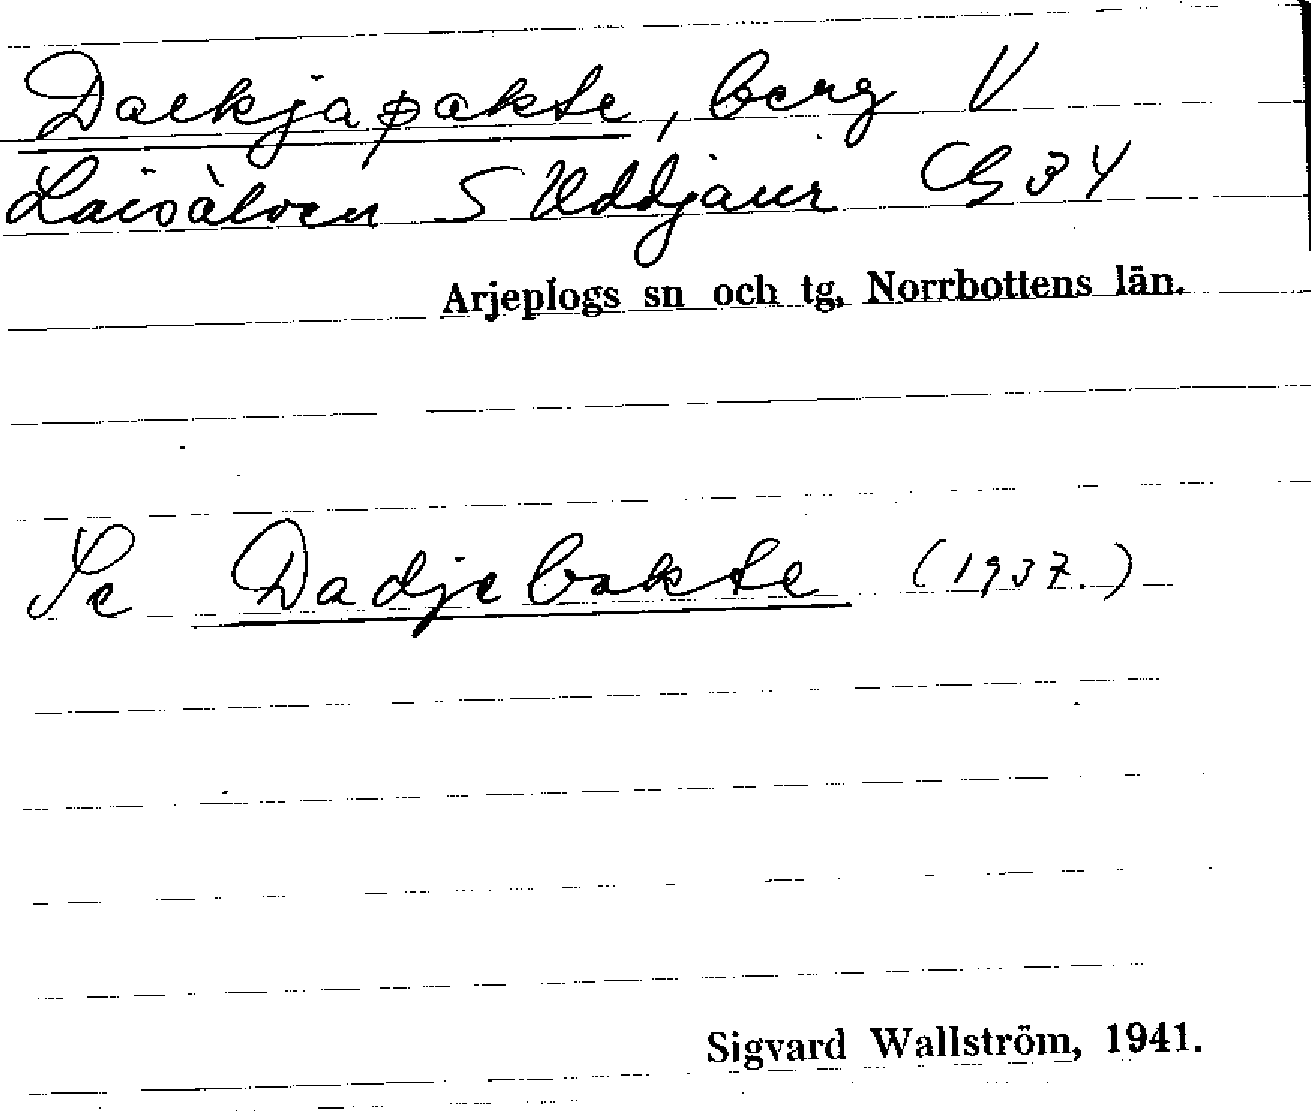 Daekjapakte, berg V
Laisälven S Uddjaur G34
Arjeplogs sn och tg, Norrbottens län.
Se Dadjebakte (1937.)
Sigvard Wallström, 1941.